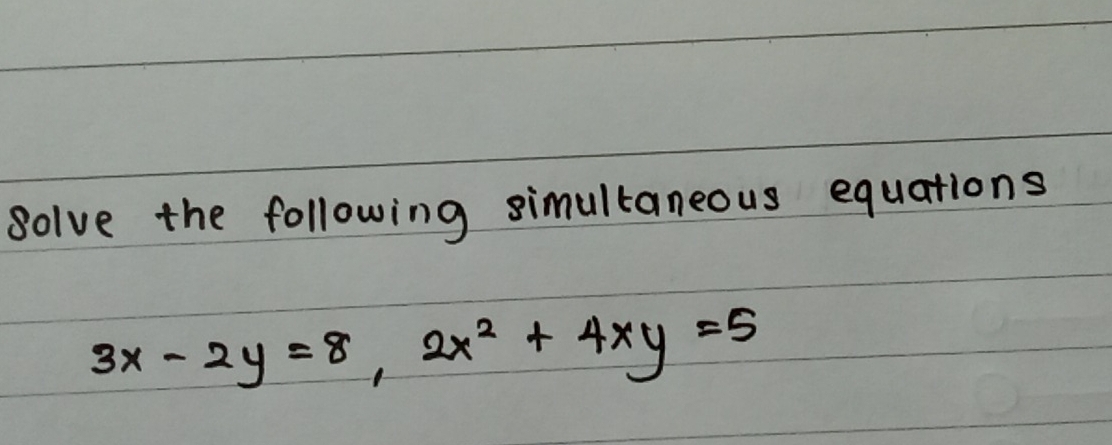 Solve the following simultaneous equations
3x - 2y = 8, 2x² + 4xy = 5